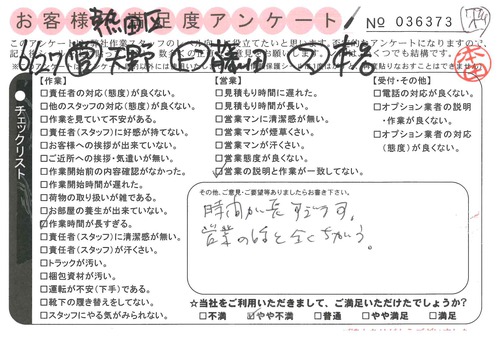 お客様 足度アンケート! No 036373
熱田区
6/27 天野 藤田
このアンケートは弊社作業スタッフの
チェックリスト
【作業】
□責任者の対応(態度)が良くない。
□他のスタッフの対応(態度)が良くない。
□作業を見ていて不安がある。
□責任者(スタッフ)に好感が持てない。
□お客様への挨拶が出来ていない。
□ご近所への挨拶・気遣いが無い。
□作業開始前の内容確認がなかった。
□作業開始時間が遅れた。
□荷物の取り扱いが雑である。
□お部屋の養生が出来ていない。
☑作業時間が長すぎる。
□責任者(スタッフ)に清潔感が無い。
□責任者(スタッフ)が汗くさい。
□トラックが汚い。
□梱包資材が汚い。
□運転が不安(下手)である。
□靴下の履き替えをしてない。
□スタッフにやる気がみられない。
【営業】
□見積もり時間に遅れた。
□見積もり時間が長い。
□営業マンに清潔感が無い。
□営業マンが煙草くさい。
□営業マンが汗くさい。
□営業態度が良くない。
☑営業の説明と作業が一致してない。
【受付・その他】
□電話の対応が良くない。
□オプション業者の説明
・作業が良くない。
□オプション業者の対応
(態度)が良くない。
その他、ご意見・ご要望等ありましたらお書き下さい。
時間が長すぎです。
営業のほと全くちがう。
☆当社をご利用いただきまして、ご満足いただけたでしょうか?
□不満 ☑やや不満 □普通 □やや満足 □満足